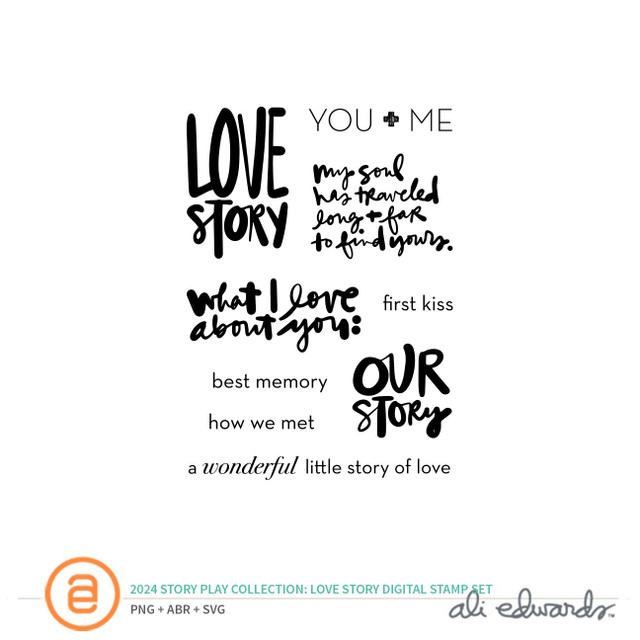 LOVE
STORY
YOU + ME
my soul
has traveled
long + far
to find yours.
what I love
about you:
first kiss
best memory
OUR
STORY
how we met
a wonderful little story of love
2024 STORY PLAY COLLECTION: LOVE STORY DIGITAL STAMP SET
PNG + ABR + SVG
a
ali edwards™